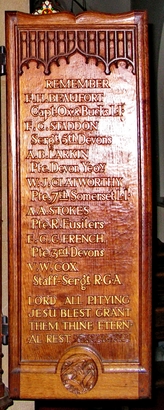 REMEMBER
H. BEAUFORT
Capt. Ox & Bucks L.I.
STADDON
Sergt 5th Devons
A. E. LARKIN
Pte Devon Yeo.
W. J. CLATWORTHY
Pte 7th Somerset L.I.
A. A. STOKES
Pte R. Fusiliers
E. C. C. FRENCH
Pte 3rd Devons
V. W. COX
Staff-Sergt R.G.A.
LORD ALL PITYING
JESU BLEST GRANT
THEM THINE ETERN
AL REST